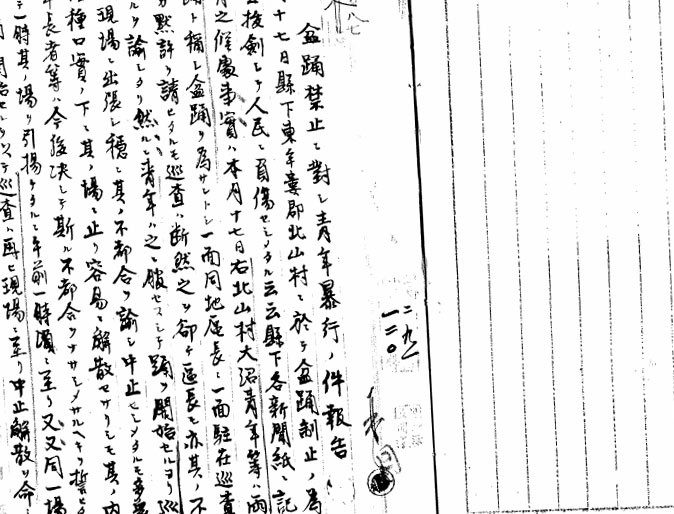 八七
盆踊禁止ニ對シ青年暴行ノ件報告
十七日縣下東牟婁郡北山村ニ於テ盆踊制止ノ為
抜劍シテ人民ヲ負傷セシメタル云云縣下各新聞紙ニ記
之候處事實ハ本月十七日右北山村大沼青年等ハ雨
ト稱シ盆踊ヲ為サントシ一面同地區長ニ一面駐在巡査
黙許ヲ請ヒタルモ巡査ハ断然之ヲ却ケ區長モ亦其ノ不
ヲ諭シタリ然ルニ青年ハ之ニ服セスシテ踊ヲ開始セルヨリ巡
現場ニ出張シ穏ニ其ノ不都合ヲ諭シ中止セシメタルモ
種口實ノ下ニ其ノ場ニ止リ容易ニ解散セサリシモ其ノ内
年長者等ハ今後決シテ斯ル不都合ヲナサシメサルヘキヲ誓ヒ
一時其ノ場ヲ引揚ケタルニ午前一時頃ニ至リ又又同一場
開始セシヲ以テ巡査ハ再ヒ現場ニ至リ中止解散ヲ命
二九
一二〇